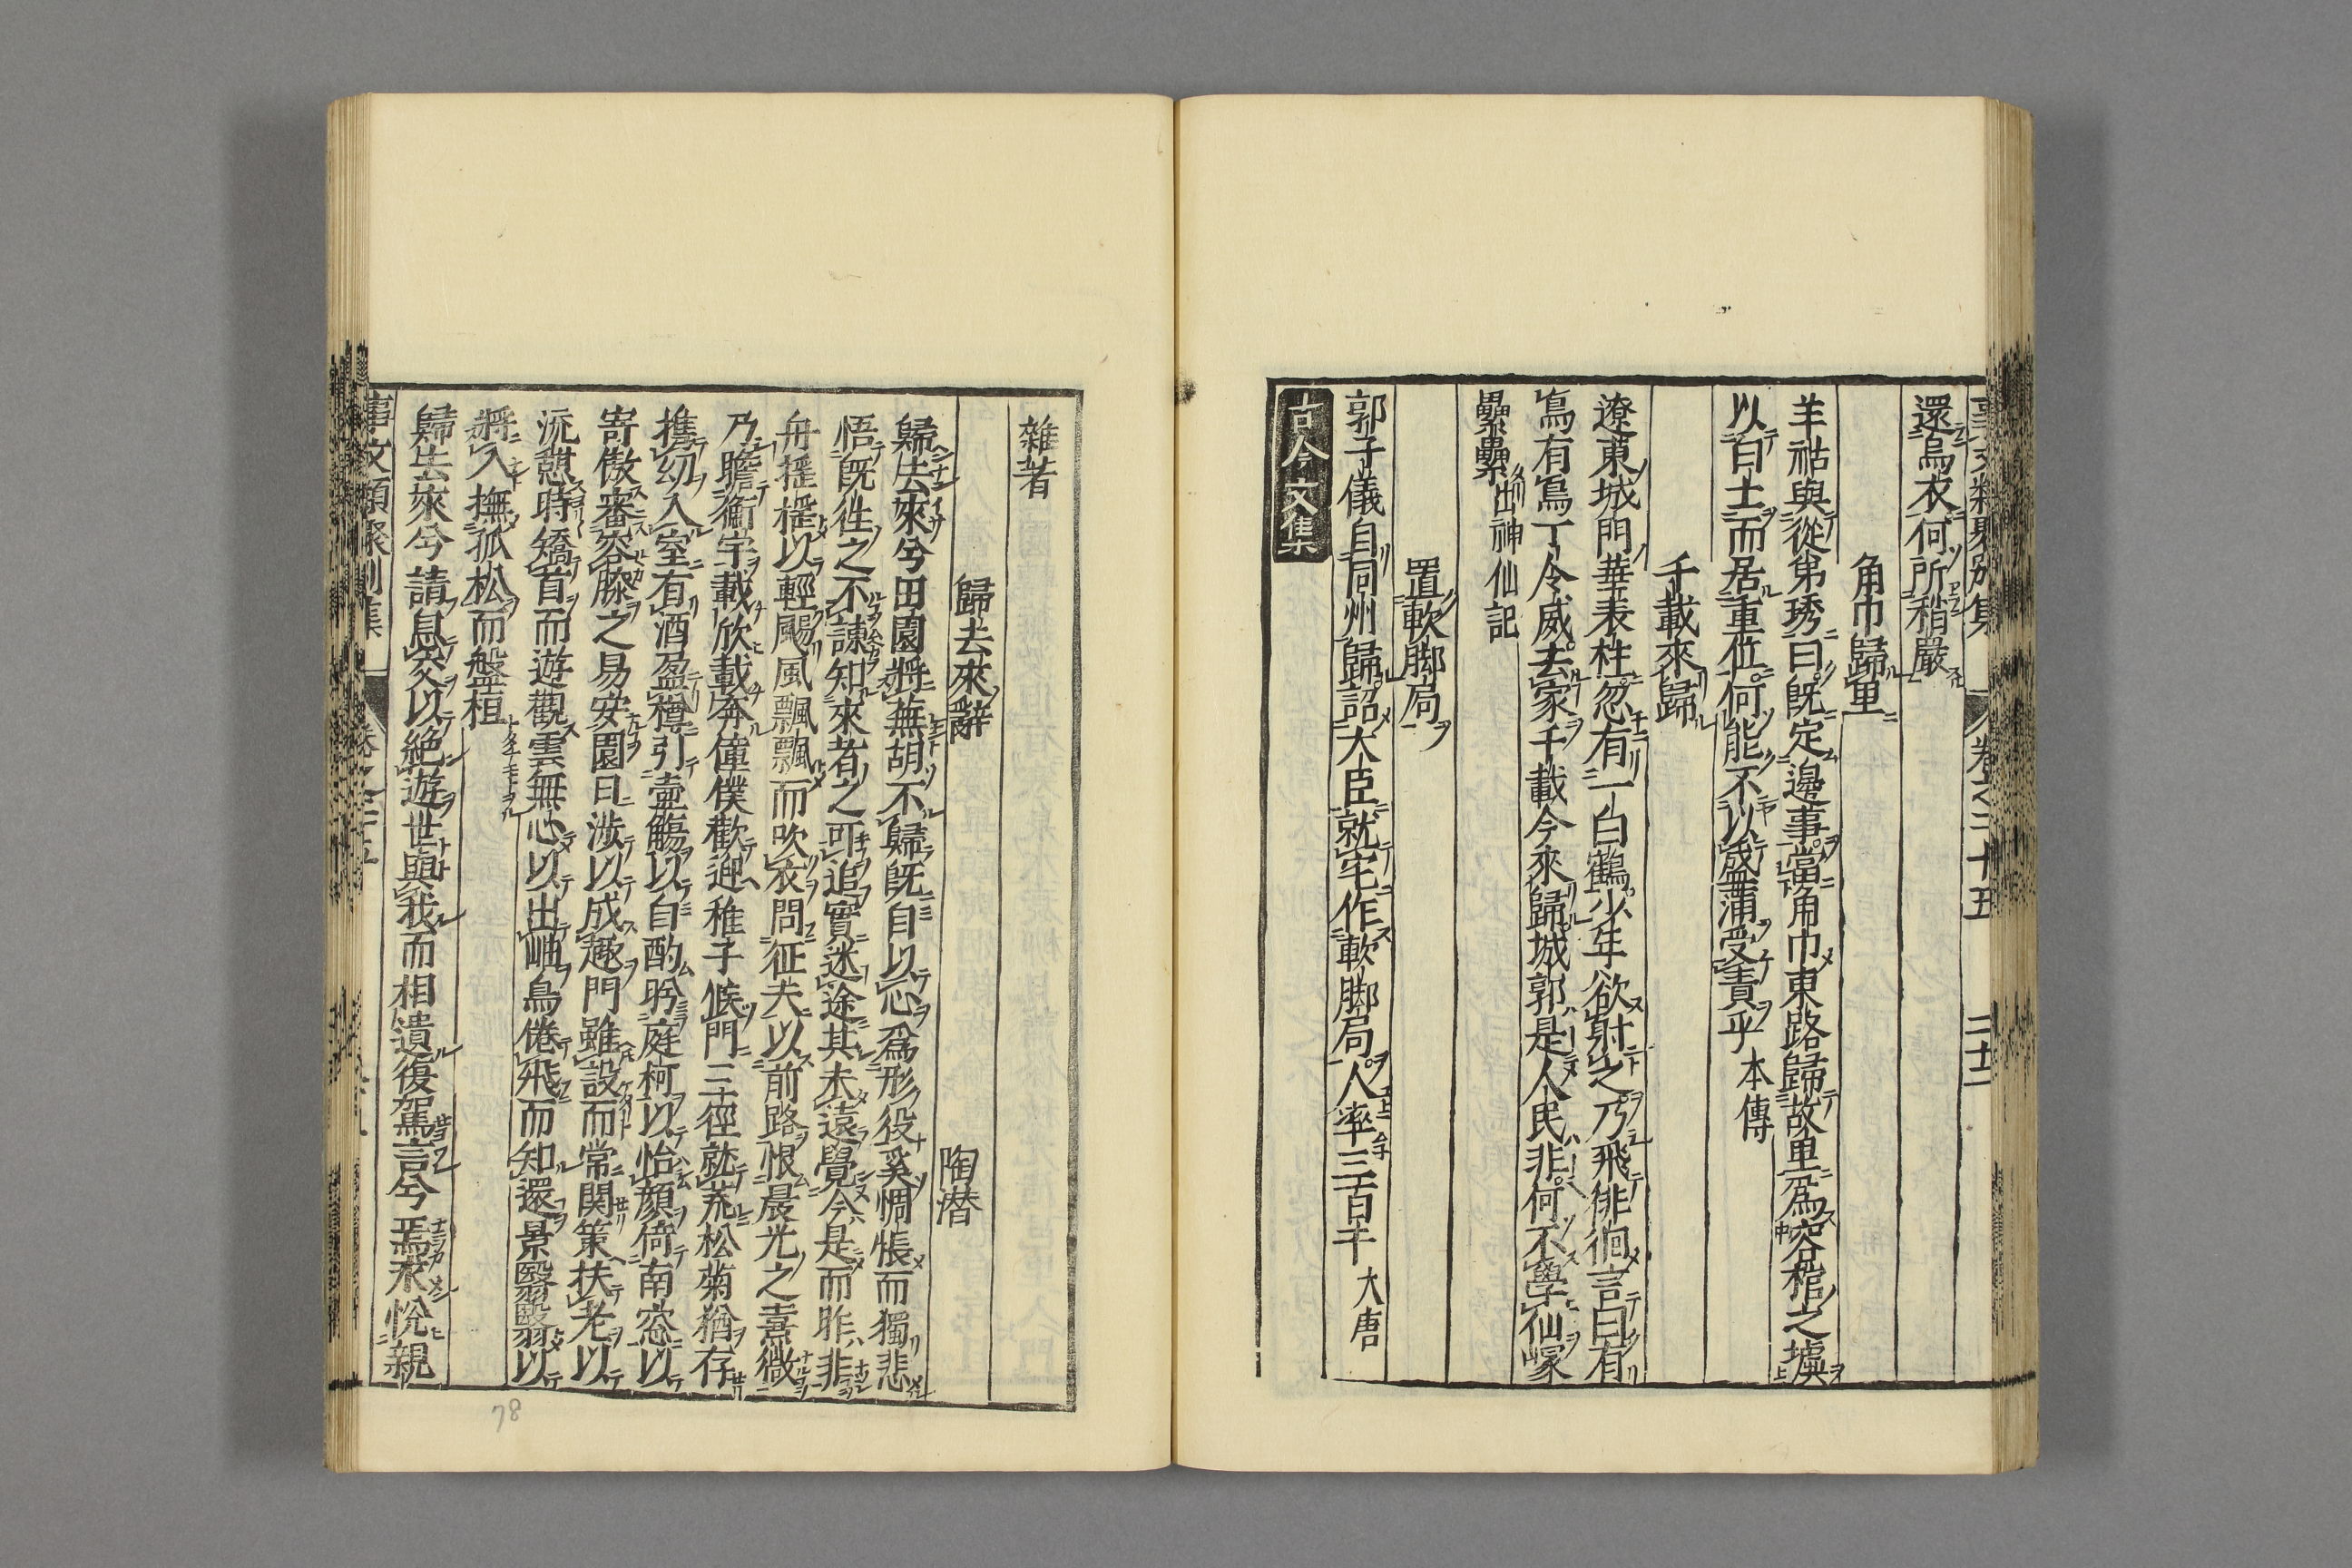 還烏衣何所稍嚴
角巾歸里
羊祜與從弟琇曰既定邊事當角巾東路歸故里爲容棺之墟
以白士而居重位何能不以盛滿受責乎 本傳
千載來歸
遼東城門華表柱忽有一白鶴少年欲射之乃飛徘徊言曰有
鳥有鳥丁令威去家千載今來歸城郭是人民非何不學仙冢
纍纍 出神仙記
置軟脚局
郭子儀自同州歸詔大臣就宅作軟脚局人率三百千 大唐
古今文集
雜著
歸去來辭 陶潜
歸去來兮田園將蕪胡不歸既自以心爲形役奚惆悵而獨悲
悟既徃之不諌知來者之可追實迷途其未遠覺今是而昨非
舟摇摇以輕颺風飄飄而吹衣問征夫以前路恨晨光之熹微
乃瞻衡宇載欣載奔僮僕歡迎稚子候門三徑就荒松菊猶存
攜幼入室有酒盈樽引壷觴以自酌眄庭柯以怡顔倚南窓以
寄傲審容膝之易安園日渉以成趣門雖設而常関策扶老以
流憩時矯首而遊觀雲無心以出岫鳥倦飛而知還景翳翳以
將入撫孤松而盤桓
歸去來兮請息交以絶遊世與我而相遺復駕言兮焉求悅親
事文類聚別集
78